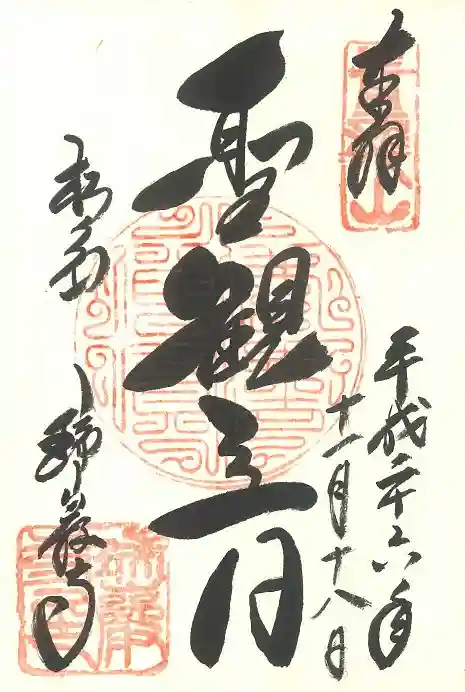 奉拝
平成二十六年
十一月十八日
聖観音
松島
瑞巌寺